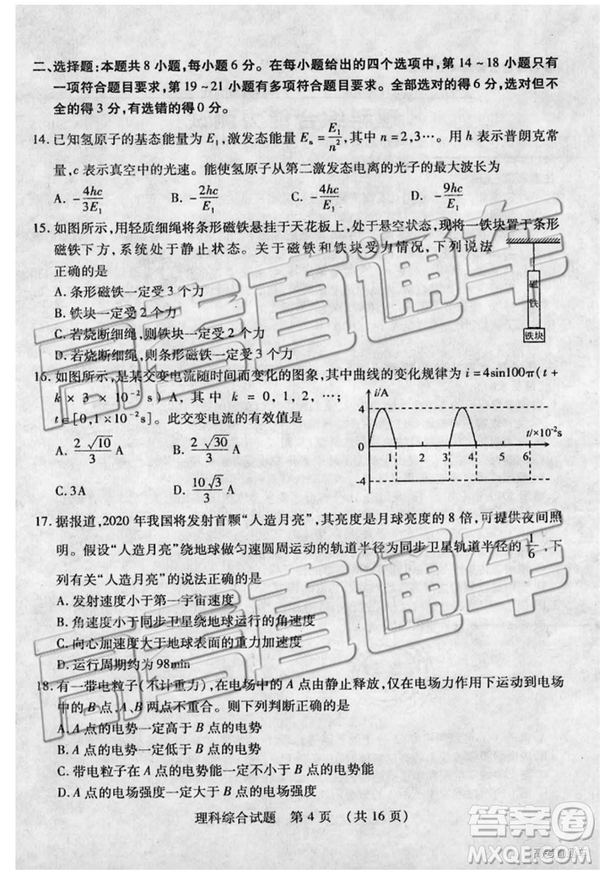 二、选择题:本题共 8 小题,每小题 6 分。在每小题给出的四个选项中,第 14~18 小题只有
一项符合题目要求,第 19~21 小题有多项符合题目要求。全部选对的得 6 分,选对但不
全的得 3 分,有选错的得 0 分。
14. 已知氢原子的基态能量为 E₁,激发态能量 Eₙ=E₁/n²,其中 n=2,3…。用 h 表示普朗克常
量,c 表示真空中的光速。能使氢原子从第二激发态电离的光子的最大波长为
A. -4hc/3E₁ B. -2hc/E₁ C. -4hc/E₁ D. -9hc/E₁
15. 如图所示,用轻质细绳将条形磁铁悬挂于天花板上,处于悬空状态,现将一铁块置于条形
磁铁下方,系统处于静止状态。关于磁铁和铁块受力情况,下列说法
正确的是
A. 条形磁铁一定受 3 个力
B. 铁块一定受 2 个力
C. 若烧断细绳,则条形磁铁一定受 2 个力
D. 若烧断细绳,铁块可能受 2 个力
磁
铁
铁块
16. 如图所示,是某交变电流随时间而变化的图象,其中曲线的变化规律为 i=4sin100π(t+
k×3×10⁻²s) A(k=0,1,2,…;
t=[0,1×10⁻²s]。此交变电流的有效值是
A. 2√10/3 A B. 2√30/3 A
C. 3A D. 10√3/3 A
i/A
4
0
-4
1 2 3 4 5 6
t/×10⁻²s
17. 据报道,2020 年我国将发射首颗“人造月亮”,其亮度是月球亮度的 8 倍,可提供夜间照
明。假设“人造月亮”绕地球做匀速圆周运动的轨道半径为同步卫星轨道半径的 1/6,下
列有关“人造月亮”的说法正确的是
A. 发射速度小于第一宇宙速度
B. 角速度小于同步卫星绕地球运行的角速度
C. 向心加速度大于地球表面的重力加速度
D. 运行周期约为 98min
18. 有一带电粒子(不计重力),在电场中的 A 点由静止释放,仅在电场力作用下运动到电场
中的 B 点,A、B 两点不重合。则下列判断正确的是
A. A 点的电势一定高于 B 点的电势
B. A 点的电势一定低于 B 点的电势
C. 带电粒子在 A 点的电势能一定不小于 B 点的电势能
D. A 点的电场强度一定大于 B 点的电场强度
理科综合试题 第 4 页 (共 16 页)
高考直通车
高考直通车
答案圈
MXQE.COM